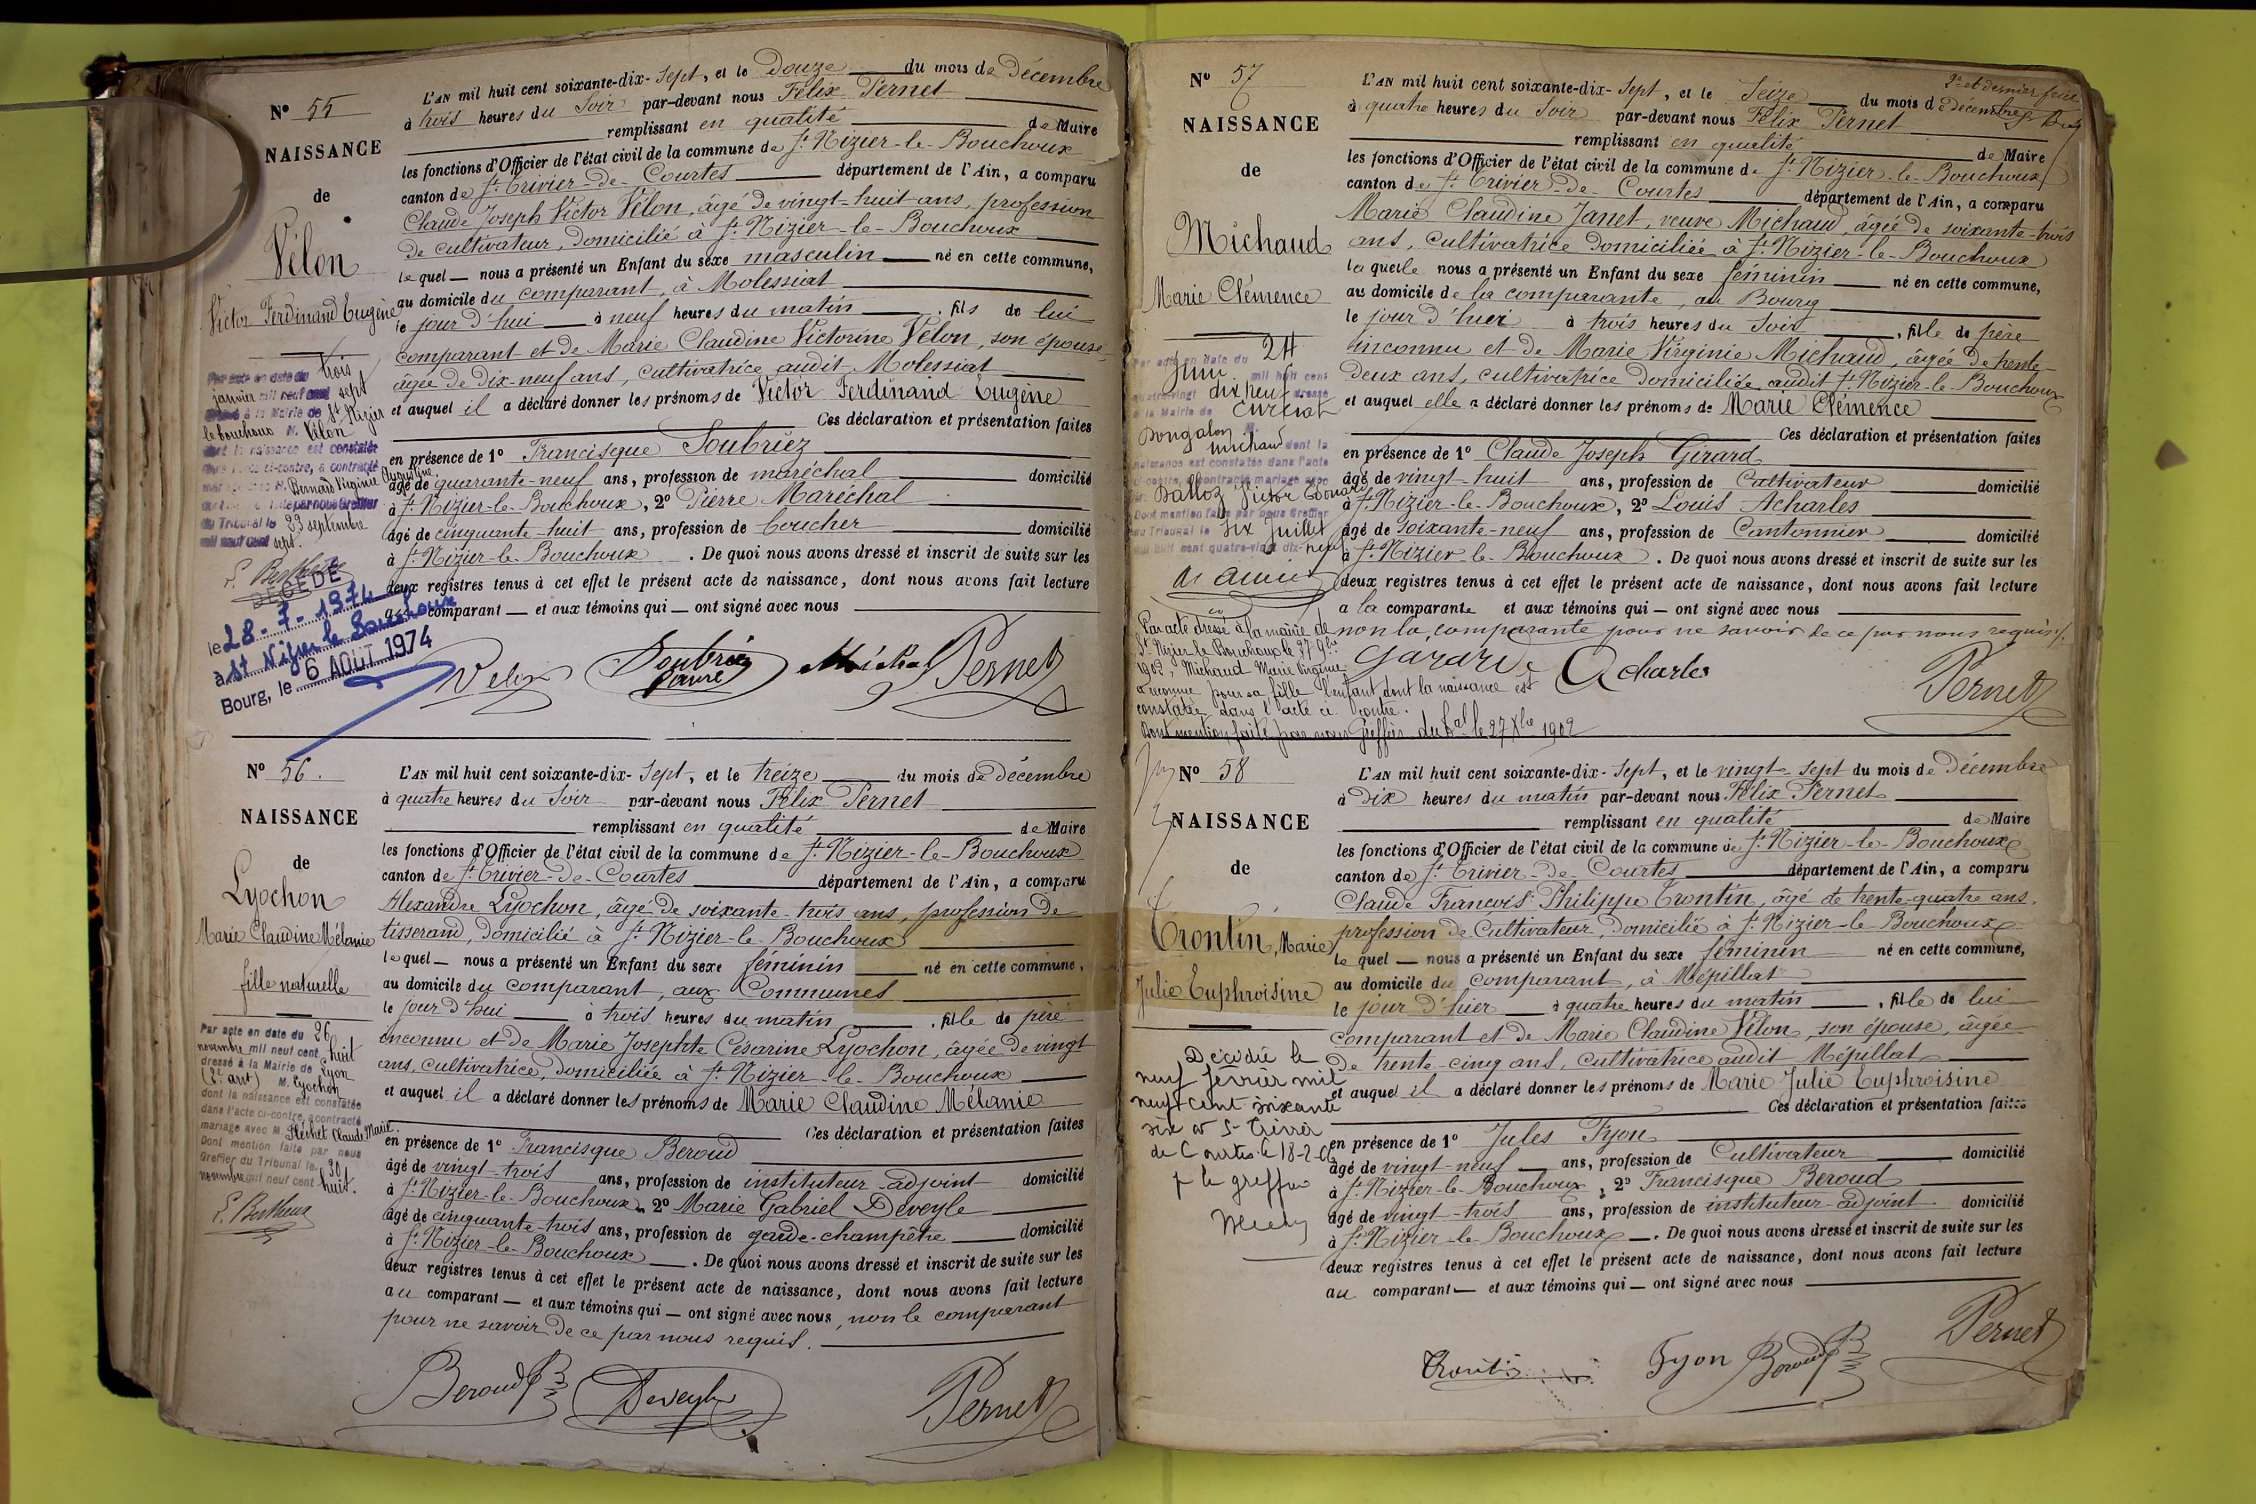 Nº 55
NAISSANCE
de
Vélon
Victor Ferdinand Eugène
Par acte en date du trois
janvier mil neuf cent sept
à la Mairie de St Nizier
le bouchoux M. Vélon
dont la naissance est constatée
dans l'acte ci-contre, a contracté
mariage avec M. Bernard Virginie Augustine
par nous Greffier
du Tribunal le 23 septembre
mil neuf cent sept.
DÉCÉDÉ
le 28-7-1974
à St Nizier le Bouchoux
Bourg, le 6 AOUT 1974
L'AN mil huit cent soixante-dix-sept, et le Douze du mois de Décembre
à trois heures du Soir par-devant nous Félix Pernet
remplissant en qualité de Maire
les fonctions d'Officier de l'état civil de la commune de St Nizier-le-Bouchoux
canton de St Trivier-de-Courtes département de l'Ain, a comparu
Claude Joseph Victor Vélon, âgé de vingt-huit ans, profession
de cultivateur, domicilié à St Nizier-le-Bouchoux
lequel nous a présenté un Enfant du sexe masculin né en cette commune,
au domicile du comparant, à Molessiat
le jour d'hui à neuf heures du matin, fils de lui
comparant et de Marie Claudine Victorine Vélon, son épouse
âgée de dix-neuf ans, cultivatrice audit Molessiat
et auquel il a déclaré donner les prénoms de Victor Ferdinand Eugène
Ces déclaration et présentation faites
en présence de 1º Francisque Soubriez
âgé de quarante-neuf ans, profession de maréchal domicilié
à St Nizier-le-Bouchoux, 2º Pierre Maréchal
âgé de cinquante-huit ans, profession de boucher domicilié
à St Nizier-le-Bouchoux. De quoi nous avons dressé et inscrit de suite sur les
deux registres tenus à cet effet le présent acte de naissance, dont nous avons fait lecture
au comparant et aux témoins qui ont signé avec nous
Velon Soubriez Pernet
Nº 56.
NAISSANCE
de
Lyochon
Marie Claudine Mélanie
fille naturelle
Par acte en date du 26
novembre mil neuf cent huit
dressé à la Mairie de Lyon
(2e arrt) M. Lyochon
dont la naissance est constatée
dans l'acte ci-contre, a contracté
mariage avec M. Fléchet Claude Marie.
Dont mention faite par nous
Greffier du Tribunal le 30
novembre mil neuf cent huit.
L'AN mil huit cent soixante-dix-sept, et le treize du mois de Décembre
à quatre heures du Soir par-devant nous Félix Pernet
remplissant en qualité de Maire
les fonctions d'Officier de l'état civil de la commune de St Nizier-le-Bouchoux
canton de St Trivier-de-Courtes département de l'Ain, a comparu
Alexandre Lyochon, âgé de soixante-trois ans, profession de
tisserand, domicilié à St Nizier-le-Bouchoux
lequel nous a présenté un Enfant du sexe féminin né en cette commune,
au domicile du comparant, aux Communes
le jour d'hui à trois heures du matin, fille de père
inconnu et de Marie Josephte Césarine Lyochon, âgée de vingt
ans, cultivatrice, domiciliée à St Nizier-le-Bouchoux
et auquel il a déclaré donner les prénoms de Marie Claudine Mélanie
Ces déclaration et présentation faites
en présence de 1º Francisque Beroud
âgé de vingt-trois ans, profession de instituteur-adjoint domicilié
à St Nizier-le-Bouchoux, 2º Marie Gabriel Deveyle
âgé de cinquante-trois ans, profession de garde-champêtre domicilié
à St Nizier-le-Bouchoux. De quoi nous avons dressé et inscrit de suite sur les
deux registres tenus à cet effet le présent acte de naissance, dont nous avons fait lecture
au comparant et aux témoins qui ont signé avec nous, non le comparant
pour ne savoir de ce par nous requis.
Beroud Deveyle Pernet
Nº 57
NAISSANCE
de
Michaud
Marie Clémence
Par acte en date du 24
Juin mil huit cent
quatre-vingt dix neuf dressé
à la Mairie de Curciat
Dongalon M.
michaud dont la
naissance est constatée dans l'acte
ci-contre, a contracté mariage avec
Balloz Victor Edouard
Dont mention faite par nous Greffier
du Tribunal le six Juillet
mil huit cent quatre-vingt dix-neuf
Par acte dressé à la mairie de
St Nizier-le-Bouchoux le 27 9bre
1902, Michaud Marie Virginie
a reconnu pour sa fille l'enfant dont la naissance est
constatée dans l'acte ci contre.
Dont mention faite par nous Greffier du Tal le 27 Xbre 1902
2e et dernier
L'AN mil huit cent soixante-dix-sept, et le Seize du mois de Décembre
à quatre heures du Soir par-devant nous Félix Pernet
remplissant en qualité de Maire
les fonctions d'Officier de l'état civil de la commune de St Nizier-le-Bouchoux
canton de St Trivier-de-Courtes département de l'Ain, a comparu
Marie Claudine Janet, veuve Michaud, âgée de soixante-trois
ans, cultivatrice domiciliée à St Nizier-le-Bouchoux
laquelle nous a présenté un Enfant du sexe féminin né en cette commune,
au domicile de la comparante, au Bourg
le jour d'hui à trois heures du Soir, fille de père
inconnu et de Marie Virginie Michaud, âgée de trente-
deux ans, cultivatrice domiciliée audit St Nizier-le-Bouchoux
et auquel elle a déclaré donner les prénoms de Marie Clémence
Ces déclaration et présentation faites
en présence de 1º Claude Joseph Girard
âgé de vingt-huit ans, profession de Cultivateur domicilié
à St Nizier-le-Bouchoux, 2º Louis Acharles
âgé de soixante-neuf ans, profession de Cantonnier domicilié
à St Nizier-le-Bouchoux. De quoi nous avons dressé et inscrit de suite sur les
deux registres tenus à cet effet le présent acte de naissance, dont nous avons fait lecture
a la comparante et aux témoins qui ont signé avec nous
non la comparante pour ne savoir de ce par nous requise.
Girard Acharles
Pernet
Nº 58
NAISSANCE
de
Trontin, Marie
Julie Euphroisine
Décédée le
neuf février mil
neuf cent soixante
six à St Trivier
de Courtes le 18-2-66
p le greffier
L'AN mil huit cent soixante-dix-sept, et le vingt-sept du mois de Décembre
à dix heures du matin par-devant nous Félix Pernet
remplissant en qualité de Maire
les fonctions d'Officier de l'état civil de la commune de St Nizier-le-Bouchoux
canton de St Trivier-de-Courtes département de l'Ain, a comparu
Claude François Philippe Trontin, âgé de trente-quatre ans,
profession de Cultivateur, domicilié à St Nizier-le-Bouchoux
lequel nous a présenté un Enfant du sexe féminin né en cette commune,
au domicile du comparant, à Mépillat
le jour d'hier à quatre heures du matin, fille de lui
comparant et de Marie Claudine Vélon, son épouse, âgée
de trente-cinq ans, cultivatrice audit Mépillat
et auquel il a déclaré donner les prénoms de Marie Julie Euphroisine
Ces déclaration et présentation faites
en présence de 1º Jules Fyon
âgé de vingt-neuf ans, profession de Cultivateur domicilié
à St Nizier-le-Bouchoux, 2º Francisque Beroud
âgé de vingt-trois ans, profession de instituteur-adjoint domicilié
à St Nizier-le-Bouchoux. De quoi nous avons dressé et inscrit de suite sur les
deux registres tenus à cet effet le présent acte de naissance, dont nous avons fait lecture
au comparant et aux témoins qui ont signé avec nous
Trontin Fyon Beroud Pernet